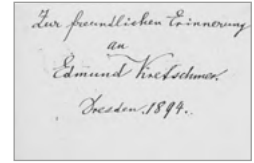 Zur freundlichen Erinnerung
an
Edmund Kretschmer.
Dresden. 1894.